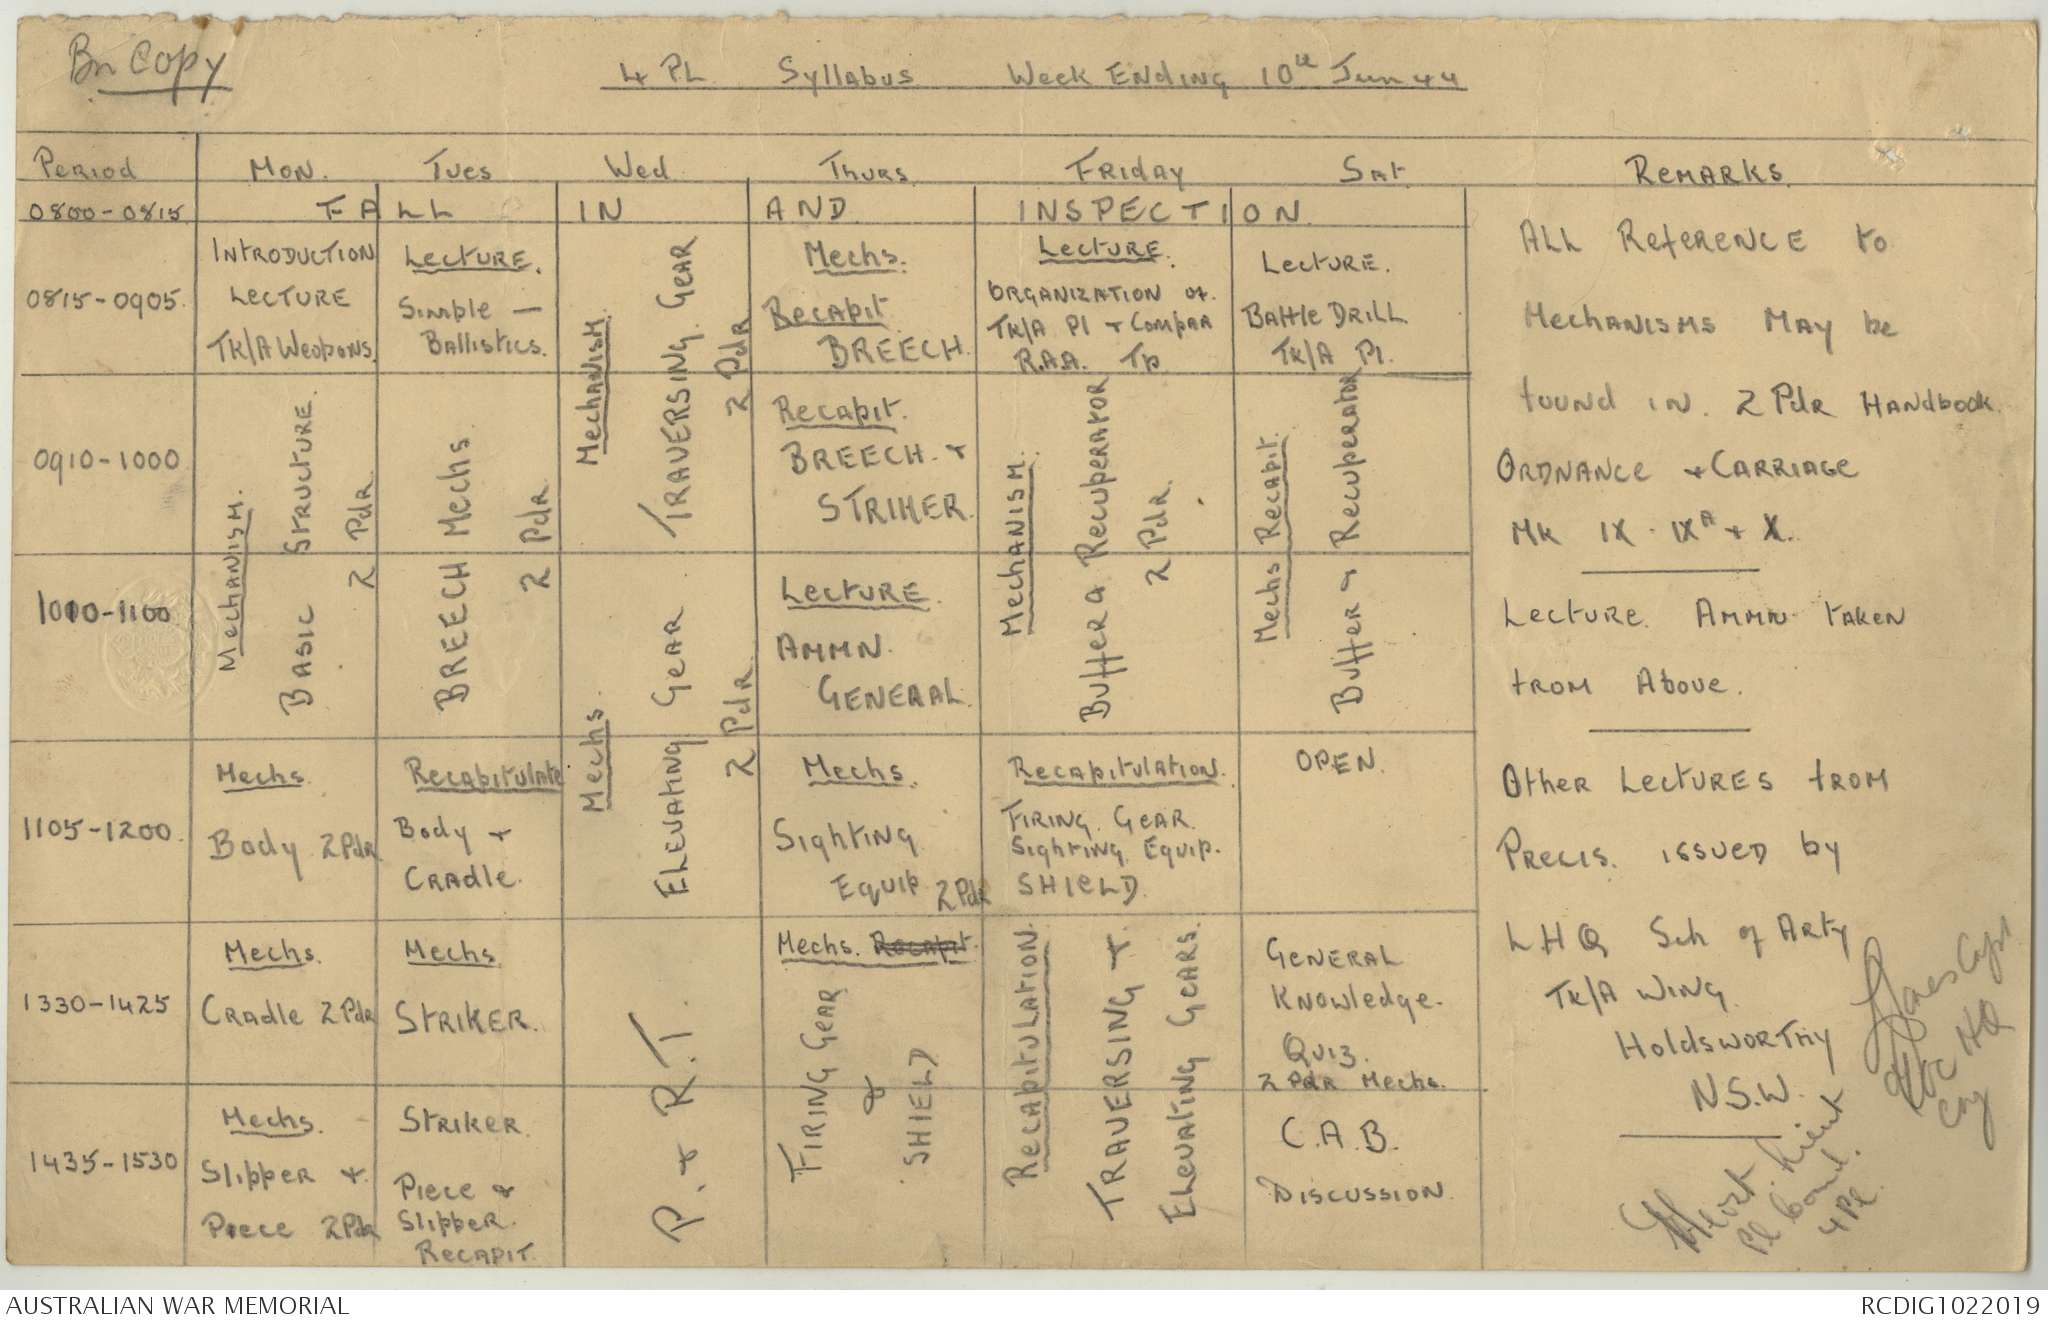 Bn Copy
4 PL Syllabus Week Ending 10th Jun 44
Period Mon. Tues Wed Thurs. Friday Sat. Remarks.
0800-0815 FALL IN AND INSPECTION
0815-0905.
Introduction
Lecture
Tk/A Weopons.
Lecture.
Simple -
Ballistics.
Mechanism.
Traversing Gear
2 Pdr
Mechs.
Recapit
Breech.
Lecture.
Organization of.
Tk/A Pl + Compaa
R.A.A. Tp
Lecture.
Battle Drill
Tk/A Pl.
0910-1000
Mechanism.
Basic Structure.
2 Pdr.
Breech Mechs.
2 Pdr.
Recapit.
Breech. +
Striker.
Mechanism.
Buffer & Recuperator
2 Pdr.
Mechs Recapit.
Buffer & Recuperator
1010-1100
Mechs.
Elevating Gear
2 Pdr.
Lecture.
Ammn.
General.
1105-1200.
Mechs.
Body 2Pdr.
Recapitulate
Body +
Cradle.
Mechs.
Sighting
Equip. 2Pdr
Recapitulation.
Firing. Gear.
Sighting. Equip.
Shield.
OPEN.
1330-1425
Mechs.
Cradle 2Pdr
Mechs.
Striker.
P. + R.T.
Mechs. Recapit.
Firing Gear
&
Shield
Recapitulation.
Traversing +
Elevating Gears.
General
Knowledge.
Quiz.
2 Pdr Mechs.
1435-1530
Mechs.
Slipper +
Piece 2Pdr
Striker.
Piece &
Slipper.
Recapit.
C.A.B.
Discussion.
All Reference to
Mechanisms May be
found in. 2 Pdr Handbook.
Ordnance + Carriage
Mk IX · IXA + X.
Lecture. Ammn. taken
from Above.
Other Lectures from
Precis. issued by
LHQ Sch of Arty
Tk/A Wing.
Holdsworthy
N.S.W.
Jones Capt
OC HQ
Coy
Lieut.
Pl Comd.
4 Pl.
AUSTRALIAN WAR MEMORIAL
RCDIG1022019